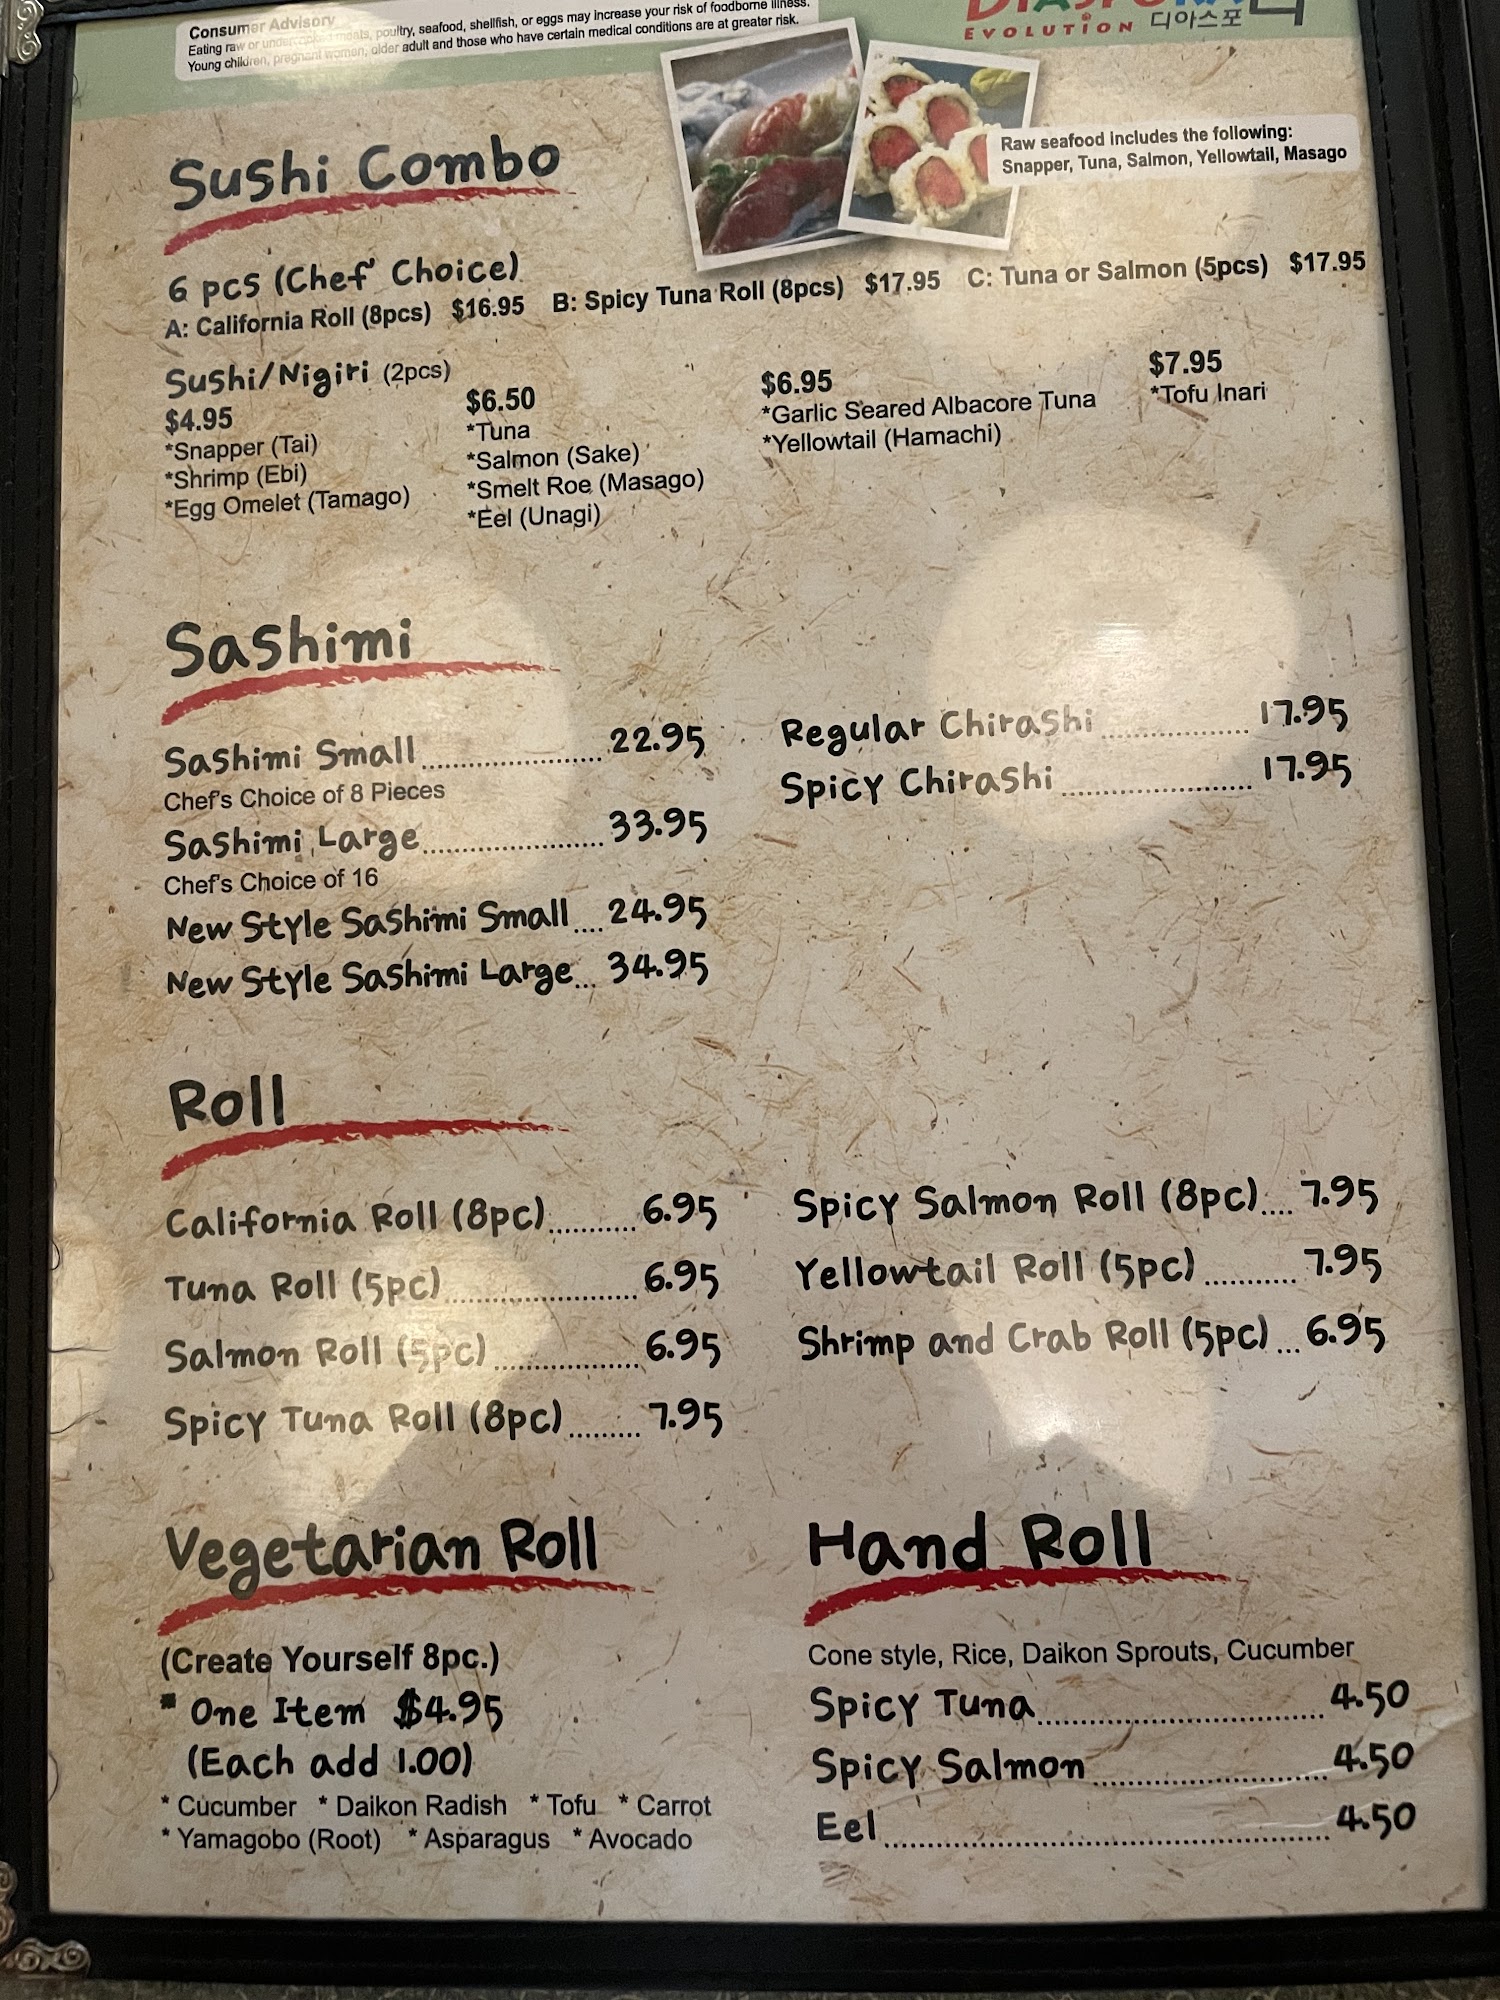 Consumer Advisory
Eating raw or undercooked meats, poultry, seafood, shellfish, or eggs may increase your risk of foodborne illness.
Young children, pregnant women, older adult and those who have certain medical conditions are at greater risk.
DIASPORA
EVOLUTION 디아스포
Raw seafood includes the following:
Snapper, Tuna, Salmon, Yellowtail, Masago
Sushi Combo
6 pcs (Chef' Choice)
A: California Roll (8pcs) $16.95 B: Spicy Tuna Roll (8pcs) $17.95 C: Tuna or Salmon (5pcs) $17.95
Sushi/Nigiri (2pcs)
$4.95
*Snapper (Tai)
*Shrimp (Ebi)
*Egg Omelet (Tamago)
$6.50
*Tuna
*Salmon (Sake)
*Smelt Roe (Masago)
*Eel (Unagi)
$6.95
*Garlic Seared Albacore Tuna
*Yellowtail (Hamachi)
$7.95
*Tofu Inari
Sashimi
Sashimi Small 22.95
Chef's Choice of 8 Pieces
Sashimi Large 33.95
Chef's Choice of 16
New Style Sashimi Small 24.95
New Style Sashimi Large 34.95
Regular Chirashi 17.95
Spicy Chirashi 17.95
Roll
California Roll (8pc) 6.95
Tuna Roll (5pc) 6.95
Salmon Roll (5pc) 6.95
Spicy Tuna Roll (8pc) 7.95
Spicy Salmon Roll (8pc) 7.95
Yellowtail Roll (5pc) 7.95
Shrimp and Crab Roll (5pc) 6.95
Vegetarian Roll
(Create Yourself 8pc.)
* One Item $4.95
(Each add 1.00)
* Cucumber * Daikon Radish * Tofu * Carrot
* Yamagobo (Root) * Asparagus * Avocado
Hand Roll
Cone style, Rice, Daikon Sprouts, Cucumber
Spicy Tuna 4.50
Spicy Salmon 4.50
Eel 4.50